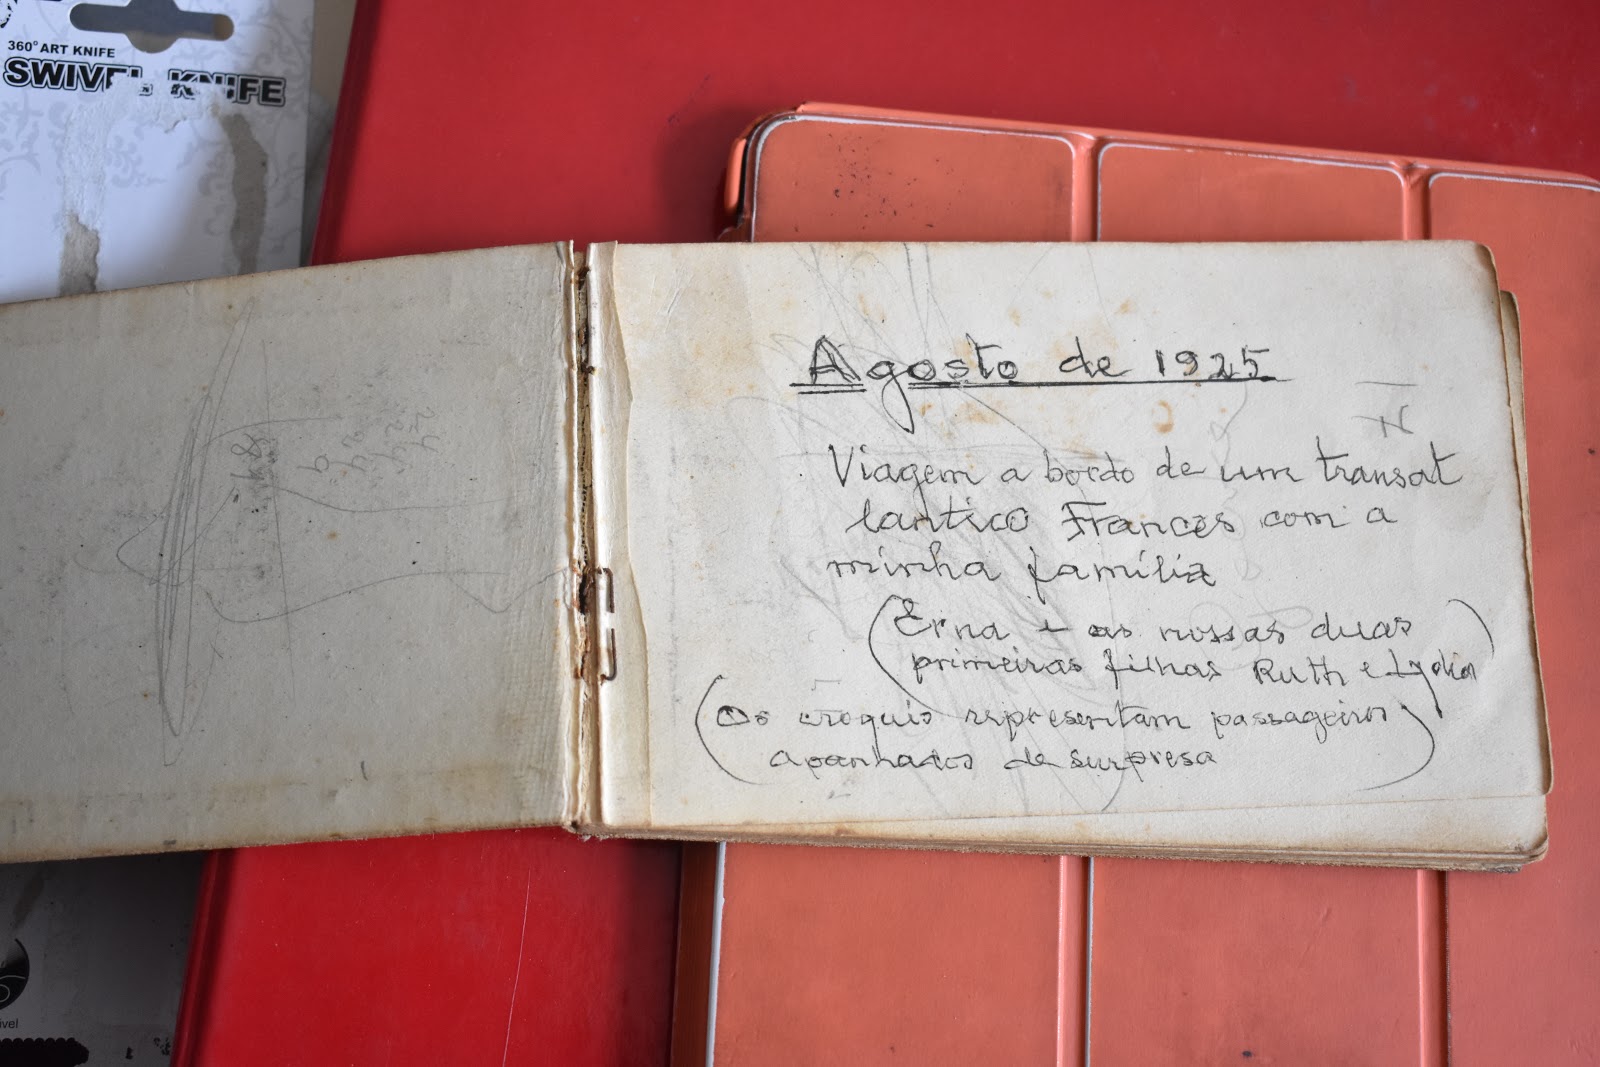 360° ART KNIFE
SWIVEL KNIFE
Agosto de 1925
Viagem a bordo de um transat
lantico Francês com a
minha família
(Erna e as nossas duas
primeiras filhas Ruth e Lydia)
(Os croquis representam passageiros
apanhados de surpresa)
ivel